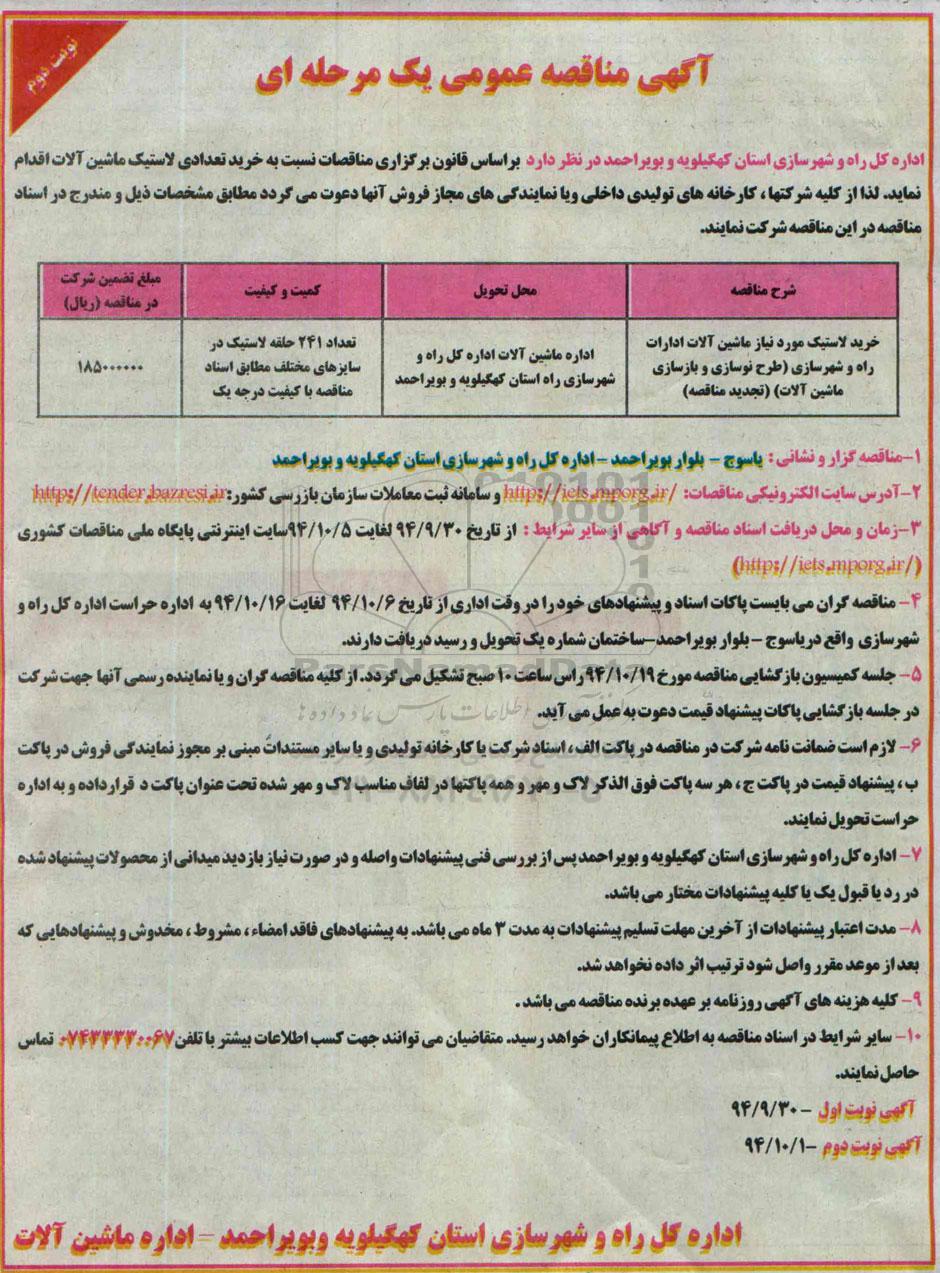 نوبت دوم
آگهی مناقصه عمومی یک مرحله ای
اداره کل راه و شهرسازی استان کهگیلویه و بویراحمد در نظر دارد براساس قانون برگزاری مناقصات نسبت به خرید تعدادی لاستیک ماشین آلات اقدام
نماید. لذا از کلیه شرکتها ، کارخانه های تولیدی داخلی ویا نمایندگی های مجاز فروش آنها دعوت می گردد مطابق مشخصات ذیل و مندرج در اسناد
مناقصه در این مناقصه شرکت نمایند.
شرح مناقصه
محل تحویل
کمیت و کیفیت
مبلغ تضمین شرکت
در مناقصه (ریال)
خرید لاستیک مورد نیاز ماشین آلات ادارات
راه و شهرسازی (طرح نوسازی و بازسازی
ماشین آلات) (تجدید مناقصه)
اداره ماشین آلات اداره کل راه و
شهرسازی راه استان کهگیلویه و بویراحمد
تعداد ۲۴۱ حلقه لاستیک در
سایزهای مختلف مطابق اسناد
مناقصه با کیفیت درجه یک
۱۸۵۰۰۰۰۰۰
۱-مناقصه گزار و نشانی : یاسوج - بلوار بویراحمد - اداره کل راه و شهرسازی استان کهگیلویه و بویراحمد
۲-آدرس سایت الکترونیکی مناقصات: http://iets.mporg.ir/ و سامانه ثبت معاملات سازمان بازرسی کشور: http://tender.bazresi.ir
۳-زمان و محل دریافت اسناد مناقصه و آگاهی از سایر شرایط : از تاریخ ۹۴/۹/۳۰ لغایت ۹۴/۱۰/۵سایت اینترنتی پایگاه ملی مناقصات کشوری
(http://iets.mporg.ir/)
۴- مناقصه گران می بایست پاکات اسناد و پیشنهادهای خود را در وقت اداری از تاریخ ۹۴/۱۰/۶ لغایت ۹۴/۱۰/۱۶ به اداره حراست اداره کل راه و
شهرسازی واقع در یاسوج - بلوار بویراحمد-ساختمان شماره یک تحویل و رسید دریافت دارند.
۵- جلسه کمیسیون بازگشایی مناقصه مورخ ۹۴/۱۰/۱۹ راس ساعت ۱۰ صبح تشکیل می گردد. از کلیه مناقصه گران و یا نماینده رسمی آنها جهت شرکت
در جلسه بازگشایی پاکات پیشنهاد قیمت دعوت به عمل می آید.
۶- لازم است ضمانت نامه شرکت در مناقصه در پاکت الف ، اسناد شرکت یا کارخانه تولیدی و یا سایر مستندات مبنی بر مجوز نمایندگی فروش در پاکت
ب ، پیشنهاد قیمت در پاکت ج ، هر سه پاکت فوق الذکر لاک و مهر و همه پاکتها در لفاف مناسب لاک و مهر شده تحت عنوان پاکت د قرارداده و به اداره
حراست تحویل نمایند.
۷- اداره کل راه و شهرسازی استان کهگیلویه و بویراحمد پس از بررسی فنی پیشنهادات واصله و در صورت نیاز بازدید میدانی از محصولات پیشنهاد شده
در رد یا قبول یک یا کلیه پیشنهادات مختار می باشد.
۸- مدت اعتبار پیشنهادات از آخرین مهلت تسلیم پیشنهادات به مدت ۳ ماه می باشد. به پیشنهادهای فاقد امضاء ، مشروط ، مخدوش و پیشنهادهایی که
بعد از موعد مقرر واصل شود ترتیب اثر داده نخواهد شد.
۹- کلیه هزینه های آگهی روزنامه بر عهده برنده مناقصه می باشد .
۱۰- سایر شرایط در اسناد مناقصه به اطلاع پیمانکاران خواهد رسید. متقاضیان می توانند جهت کسب اطلاعات بیشتر با تلفن ۰۷۴۳۳۳۳۰۰۶۷ تماس
حاصل نمایند.
آگهی نوبت اول - ۹۴/۹/۳۰
آگهی نوبت دوم -۹۴/۱۰/۱
اداره کل راه و شهرسازی استان کهگیلویه وبویراحمد - اداره ماشین آلات
ParsNamadData